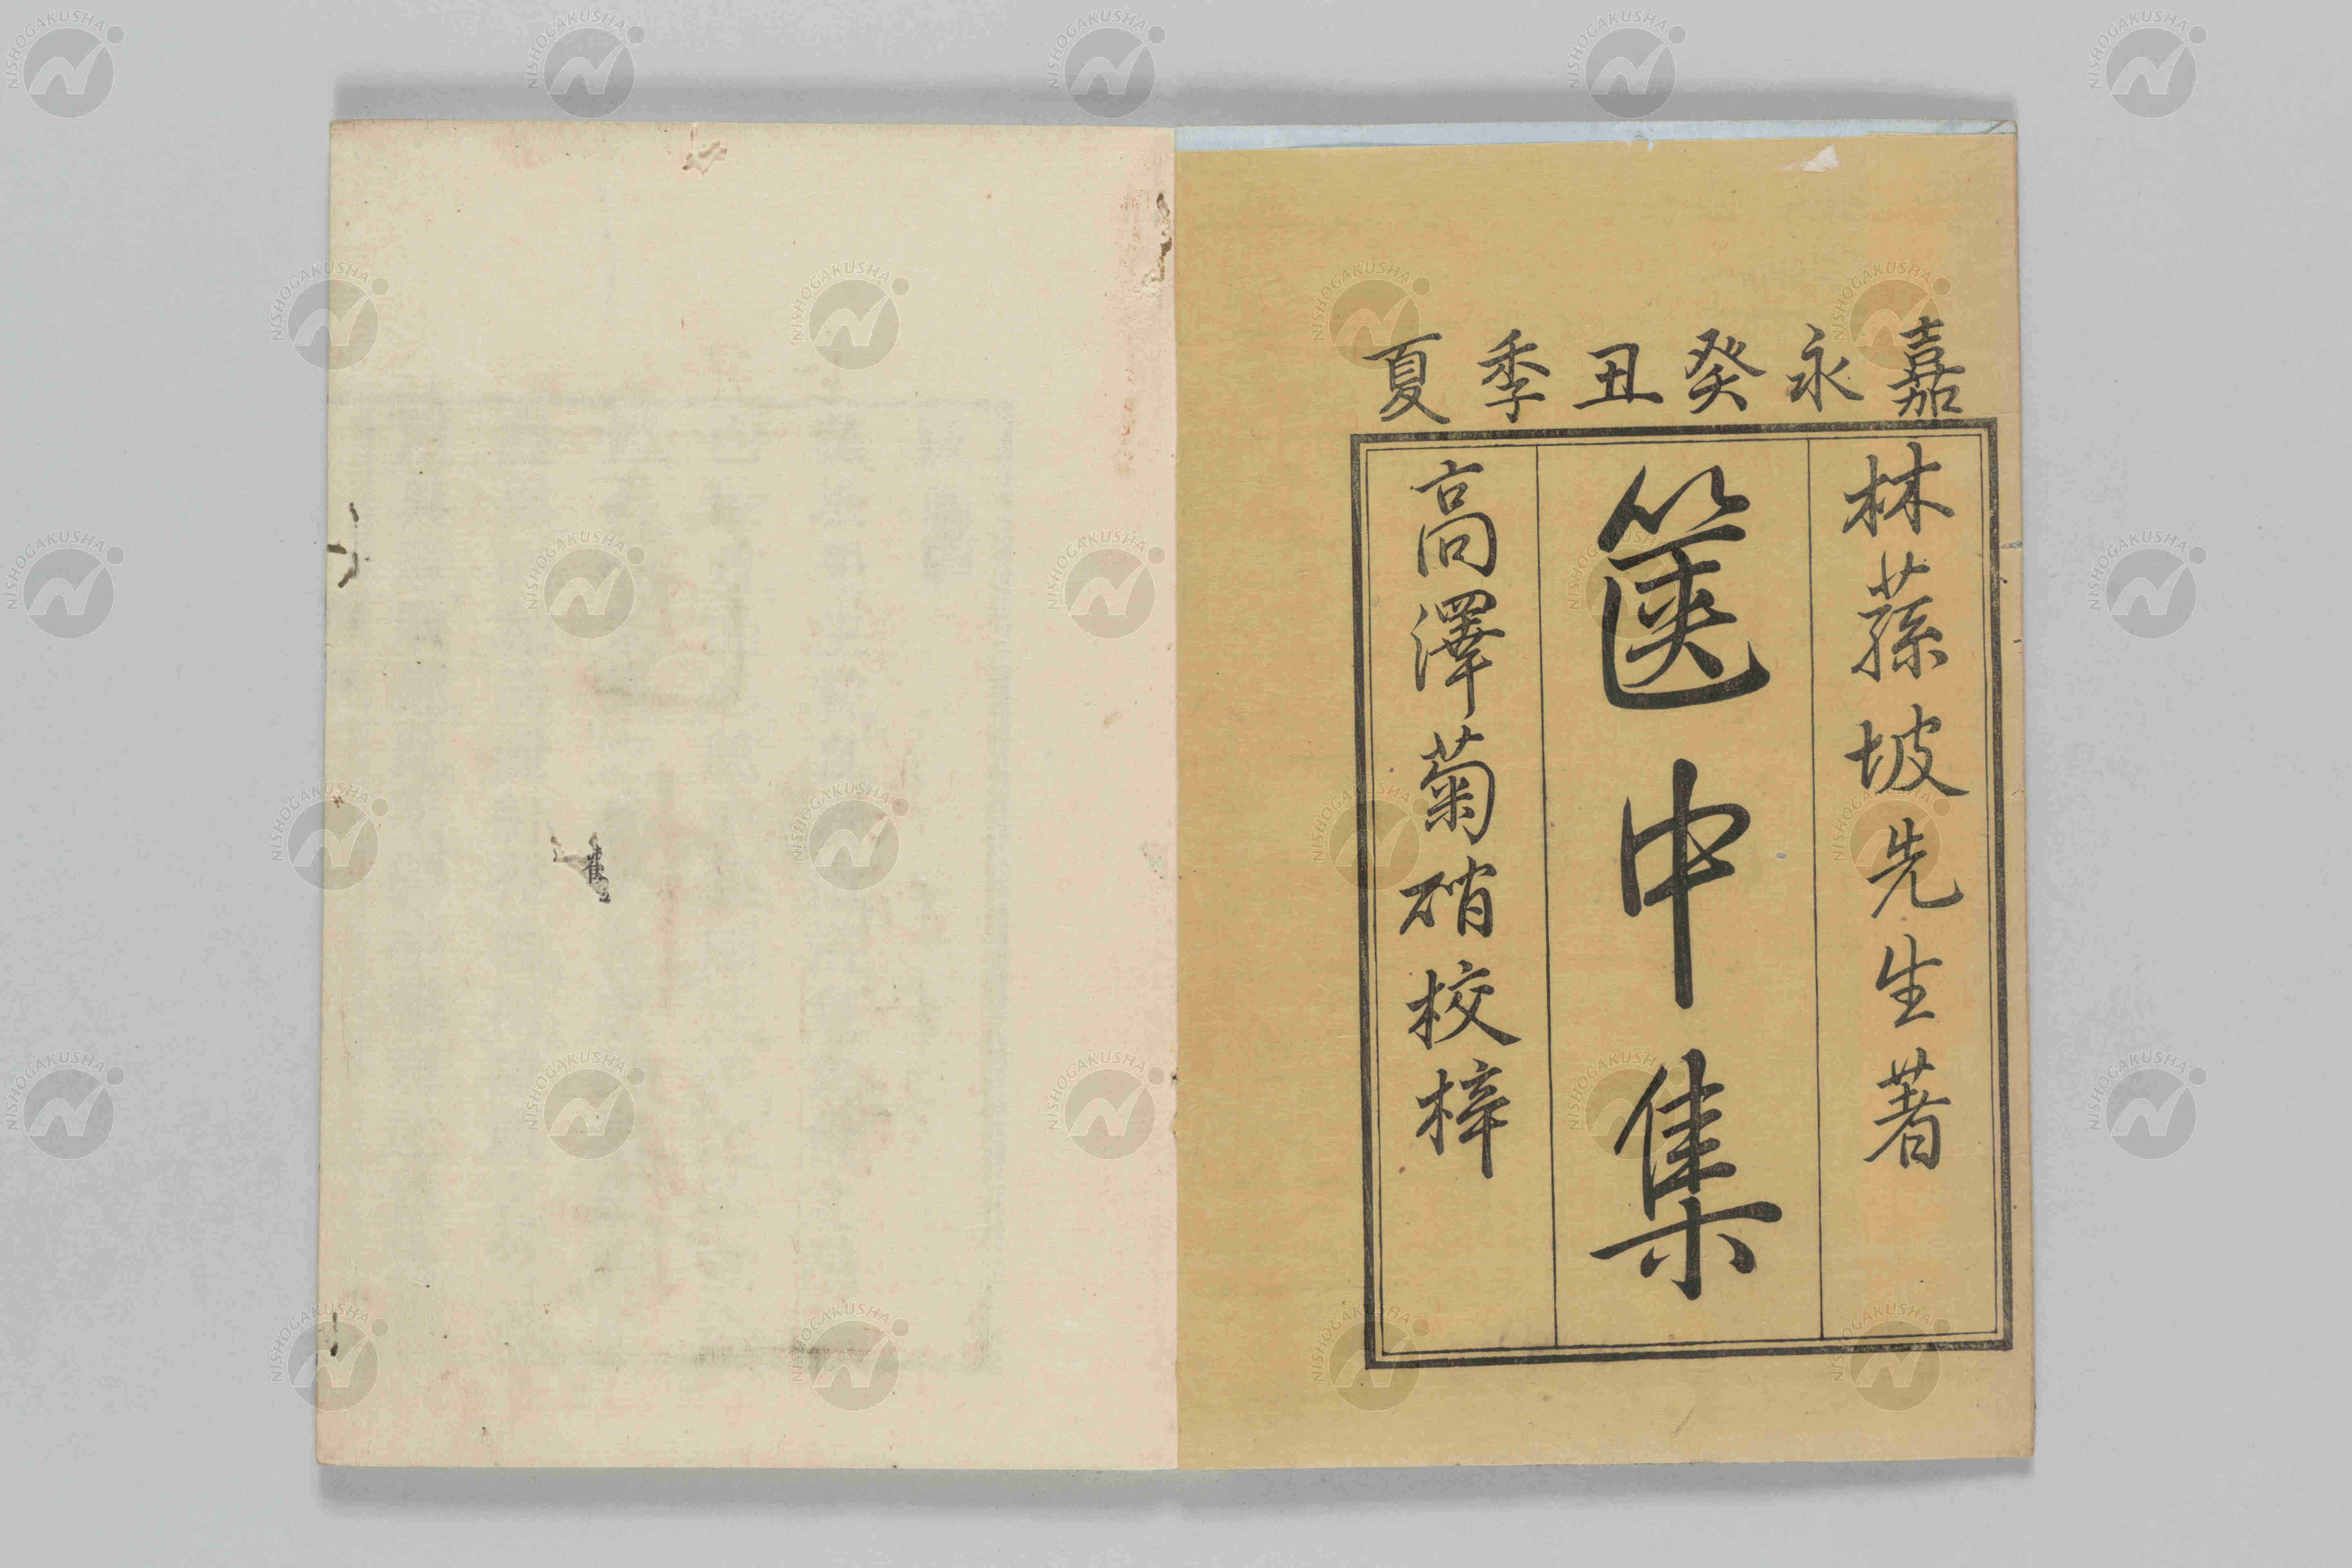 嘉永癸丑季夏
林蓀坡先生著
篋中集
高澤菊硝校梓
NISHOGAKUSHA